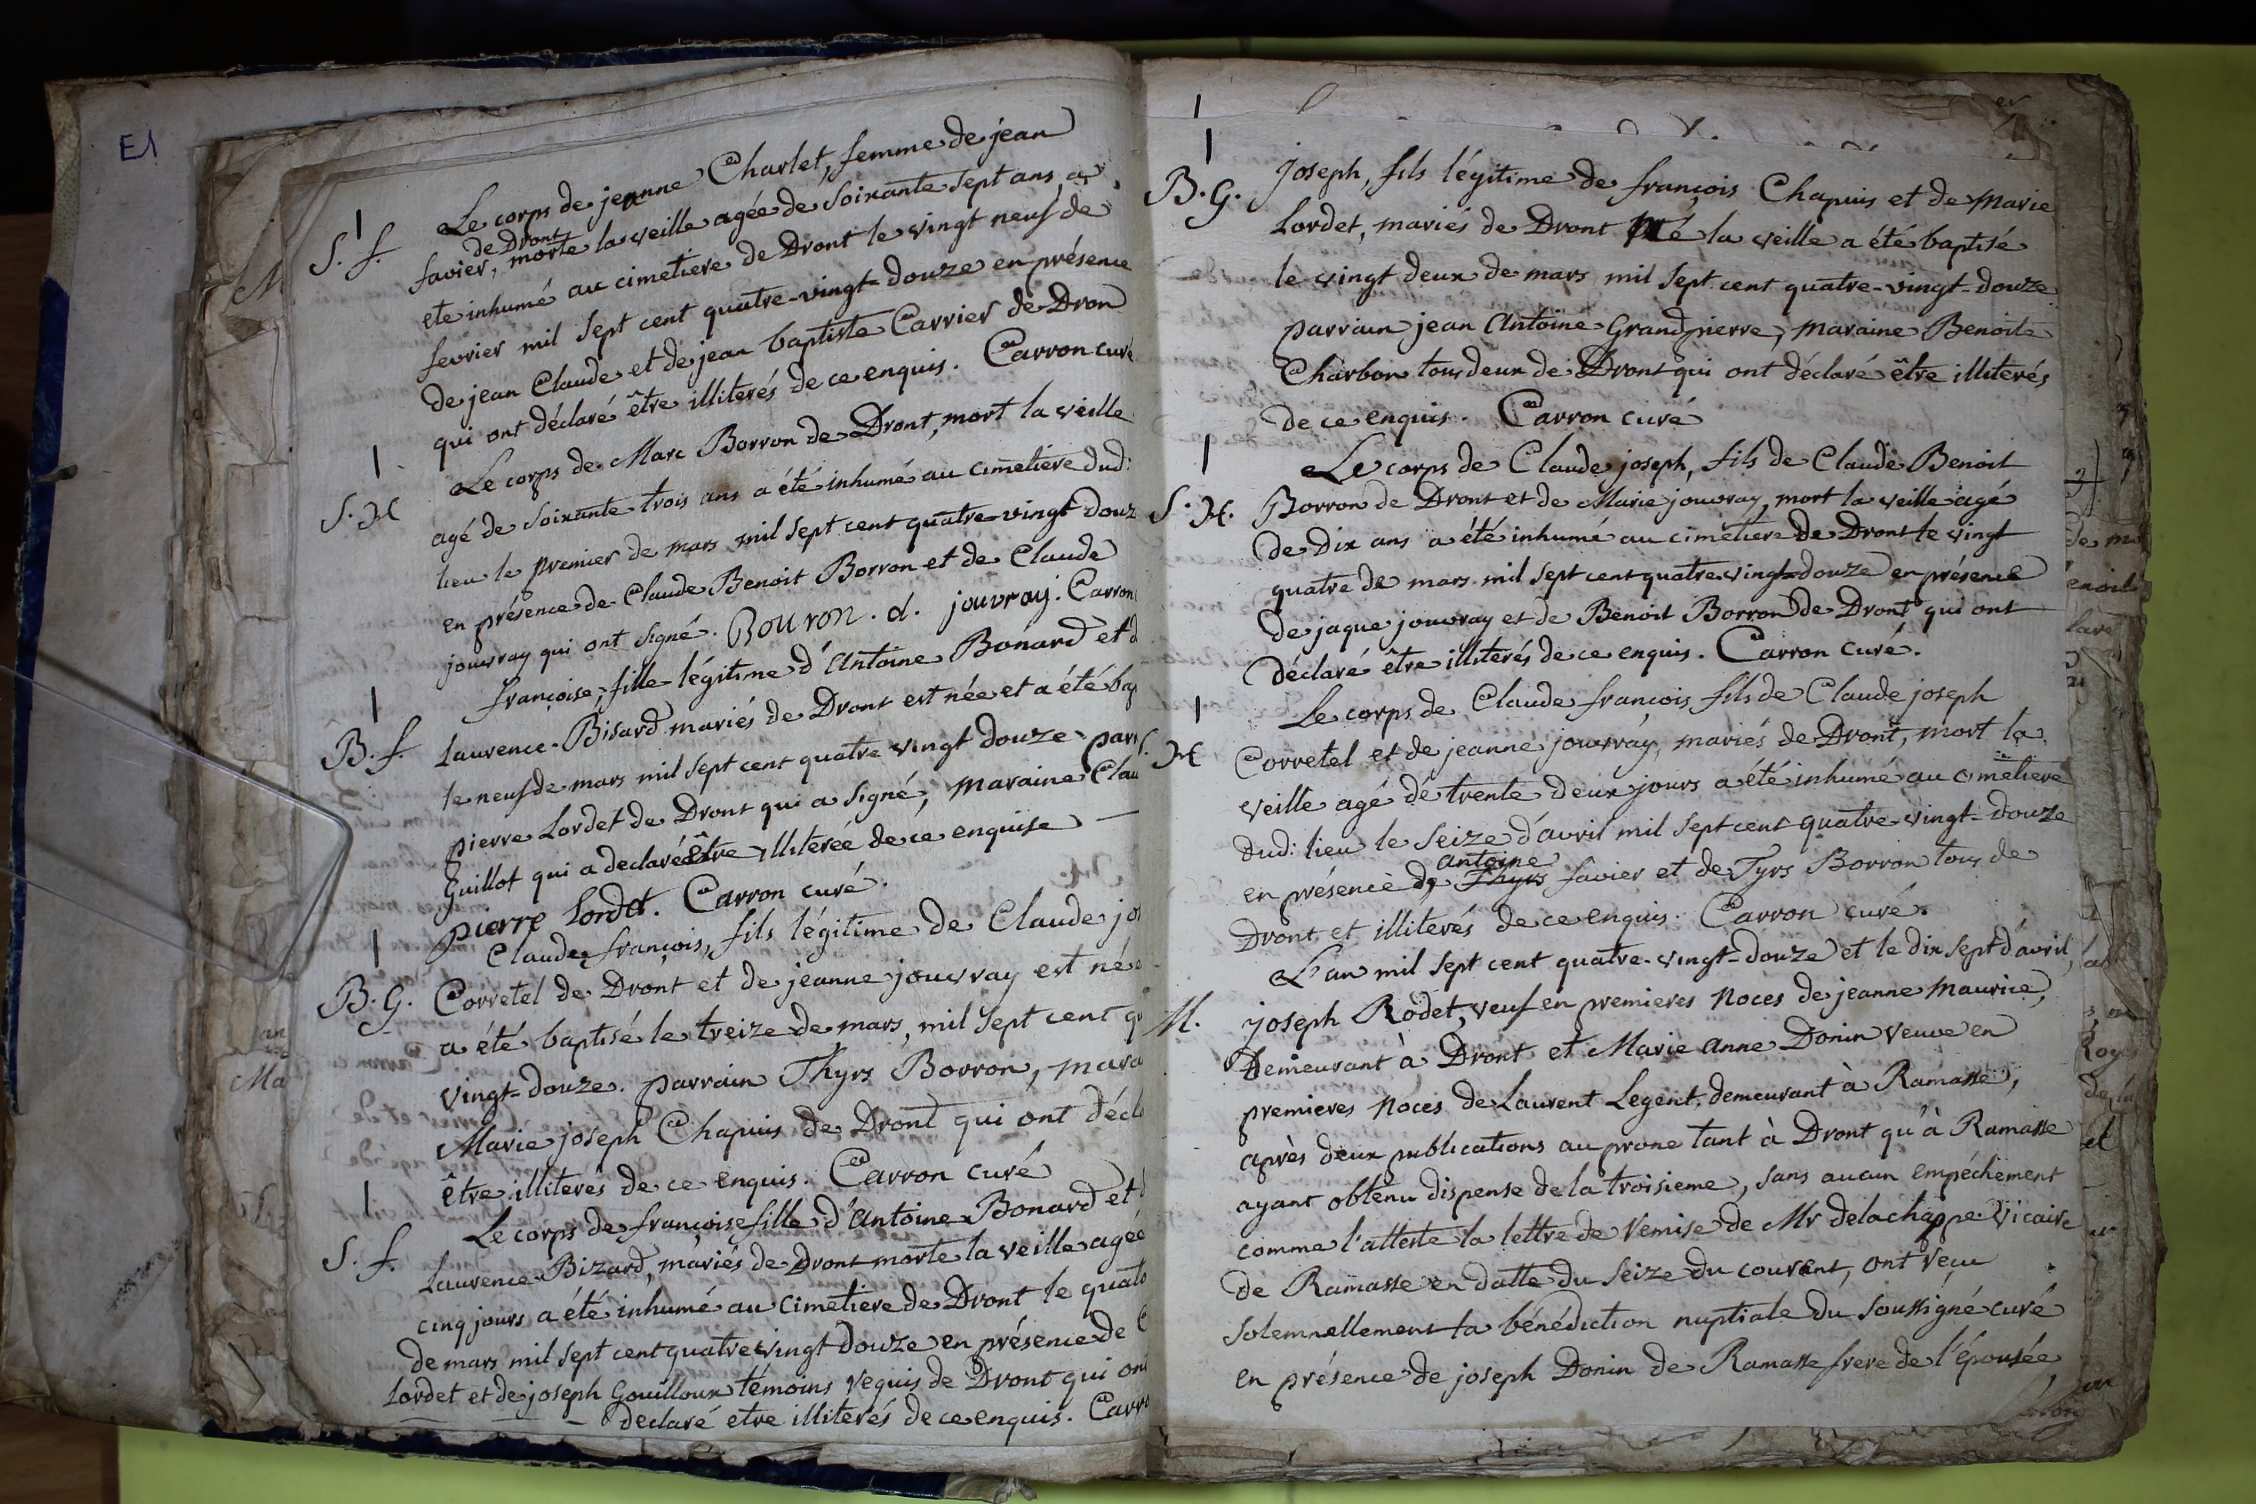 E1
Le corps de jeanne Charlet, femme de jean
de Dront
S. f. favier, morte la veille agée de Soixante Sept ans, a
ete inhumé au cimetiere de Dront le vingt neuf de
fevrier mil Sept cent quatre-vingt-douze en présence
de jean Claude et de jean baptiste Carrier de Dron
qui ont déclaré être illiterés de ce enquis. Carron curé
Le corps de Marc Borron de Dront, mort la veille
S. H agé de Soixante trois ans a été inhumé au cimetiere dud:
lieu le premier de mars mil Sept cent quatre-vingt douz
en présence de Claude Benoit Borron et de Claude
jouvray qui ont signé. BOURON. d. jouvray. Carron
françoise, fille légitime d'Antoine Bonard et d
B. f. Laurence Bisard mariés de Dront est née et a été bap
le neuf de mars mil Sept cent quatre vingt douze parr
pierre Lordet de Dront qui a signé, maraine Clau
Guillot qui a declaré être illiterée de ce enquise
pierre Lordet. Carron curé.
Claude françois, fils légitime de Claude jos
B. G. Corretel de Dront et de jeanne jouvray est né e
a été baptisé le treize de mars, mil Sept cent qu
vingt-douze. parrain Thyrs Borron, mara
Marie joseph Chapuis de Dront qui ont décla
être illiteres de ce enquis. Carron curé
Le corps de françoise fille d'Antoine Bonard et d
S. f. Laurence Bizard, mariés de Dront morte la veille agée
cinq jours a été inhumé au cimetiere de Dront le quato
de mars mil Sept cent quatre vingt douze en présence de C
Lordet et de joseph Gouilloux témoins requis de Dront qui ont
declaré etre illiterés de ce enquis. Carro
joseph, fils légitime de françois Chapuis et de Marie
B. G. Lordet, mariés de Dront Né la veille a été baptisé
le vingt deux de mars mil Sept cent quatre-vingt-douze
parrain jean Antoine Grandpierre, maraine Benoite
Charbon tous deux de Dront qui ont déclaré être illiterés
de ce enquis. Carron curé
Le corps de Claude joseph, fils de Claude Benoit
S. H. Borron de Dront et de Marie jouvray, mort la veille agé
de Dix ans a été inhumé au cimetiere de Dront le vingt
quatre de mars mil Sept cent quatre-vingt-douze en présence
de jaque jouvray et de Benoit Borron de Dront qui ont
déclaré être illiterés de ce enquis. Carron curé.
Le corps de Claude françois fils de Claude joseph
S. H Corretel et de jeanne jouvray, mariés de Dront, mort la
veille agé de trente deux jours a été inhumé au cimetiere
dud: lieu le Seize d'avril mil Sept cent quatre-vingt-douze
antoine
en présence de Thyrs favier et de Tyrs Borron tous de
Dront et illiterés de ce enquis. Carron curé.
L'an mil Sept cent quatre-vingt-douze et le dix Sept d'avril,
M. joseph Rodet, veuf en premieres Noces de jeanne Maurice,
Demeurant à Dront et Marie Anne Donin veuve en
premieres Noces de Laurent Legent demeurant à Ramasse,
après deux publications au prone tant à Dront qu'à Ramasse
ayant obtenu dispense de la troisieme, sans aucun empéchement
comme l'atteste la lettre de remise de Mr delachappe vicaire
de Ramasse en datte du Seize du courant, ont reçu
Solemnellement la bénédiction nuptiale du Soussigné curé
en présence de joseph Donin de Ramasse frere de l'épousée